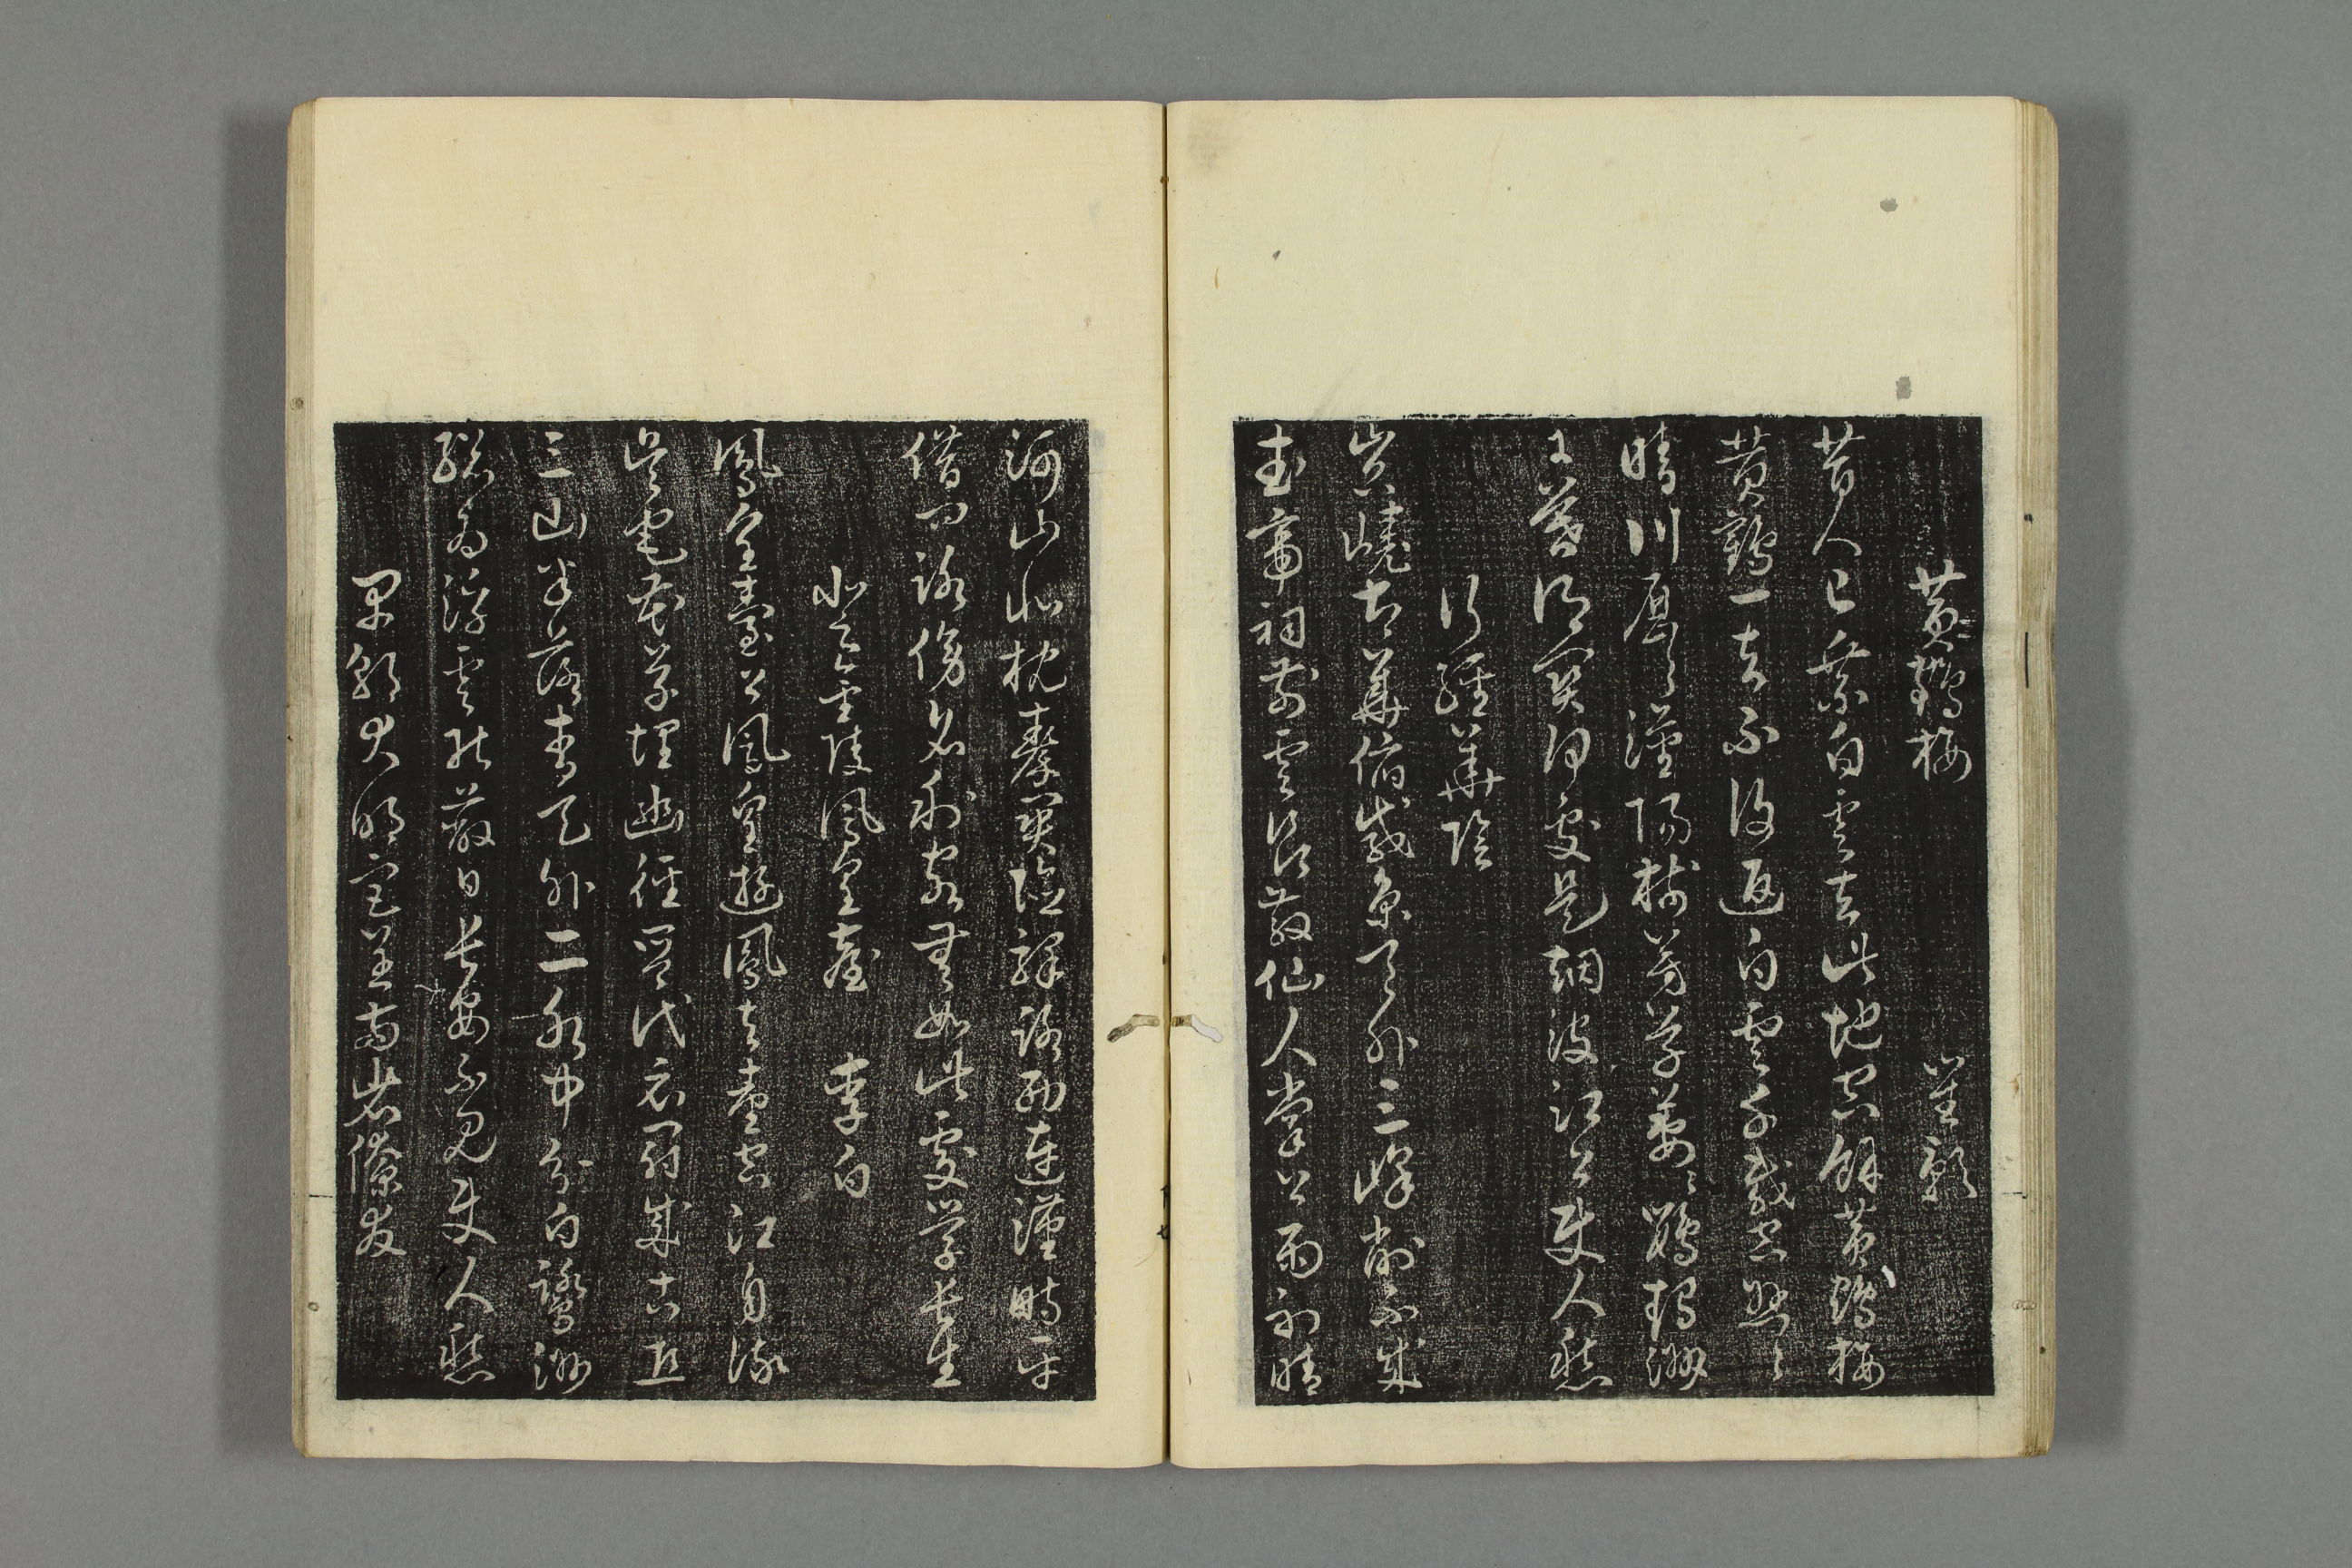 黄鶴楼 崔顥
昔人已乗白雲去此地空餘黄鶴楼
黄鶴一去不復返白雲千載空悠々
晴川歴々漢陽樹芳草萋々鸚鵡洲
日暮郷関何處是烟波江上使人愁
行經華陰
岧嶢太華俯咸京天外三峰削不成
武帝祠前雲欲散仙人掌上雨初晴
河山北枕秦関險驛路西連漢時平
借問路傍名利客無如此處学長生
登金陵鳳皇臺 李白
鳳皇臺上鳳皇遊鳳去臺空江自流
吴宮花草埋幽徑晋代衣冠成古丘
三山半落青天外二水中分白鷺洲
総為浮雲能蔽日長安不見使人愁
早朝大明宮呈両省僚友